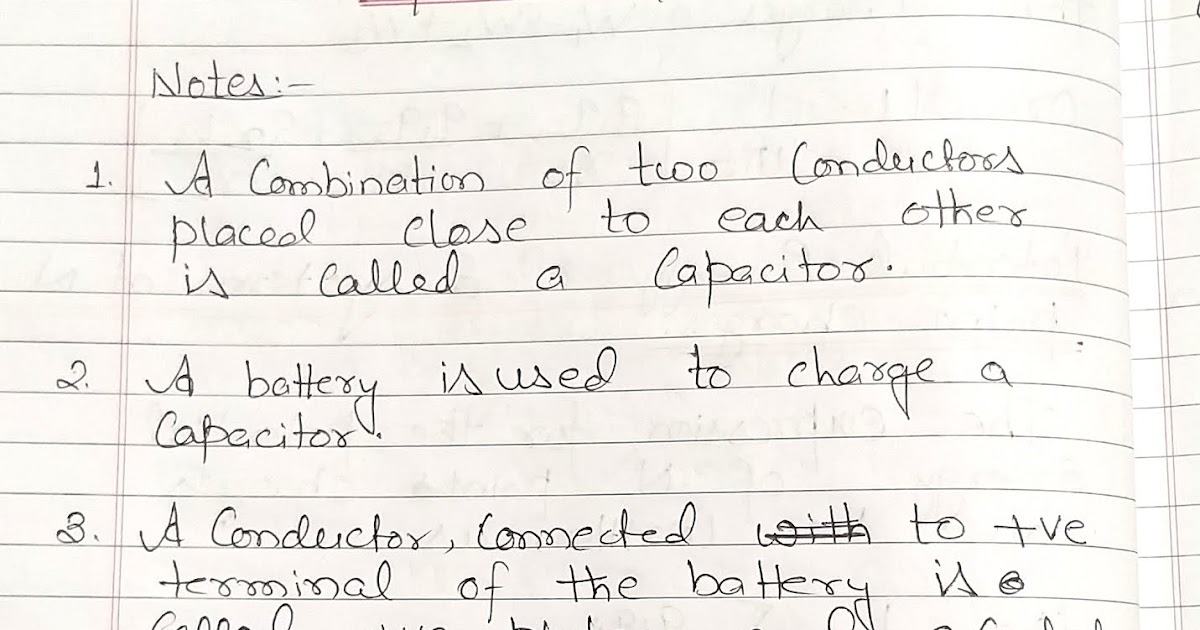 Notes:-
1. A Combination of two Conductors
placed close to each other
is Called a Capacitor.
2. A battery is used to charge a
Capacitor.
3. A Conductor, Connected with to +ve
terminal of the battery is
Called